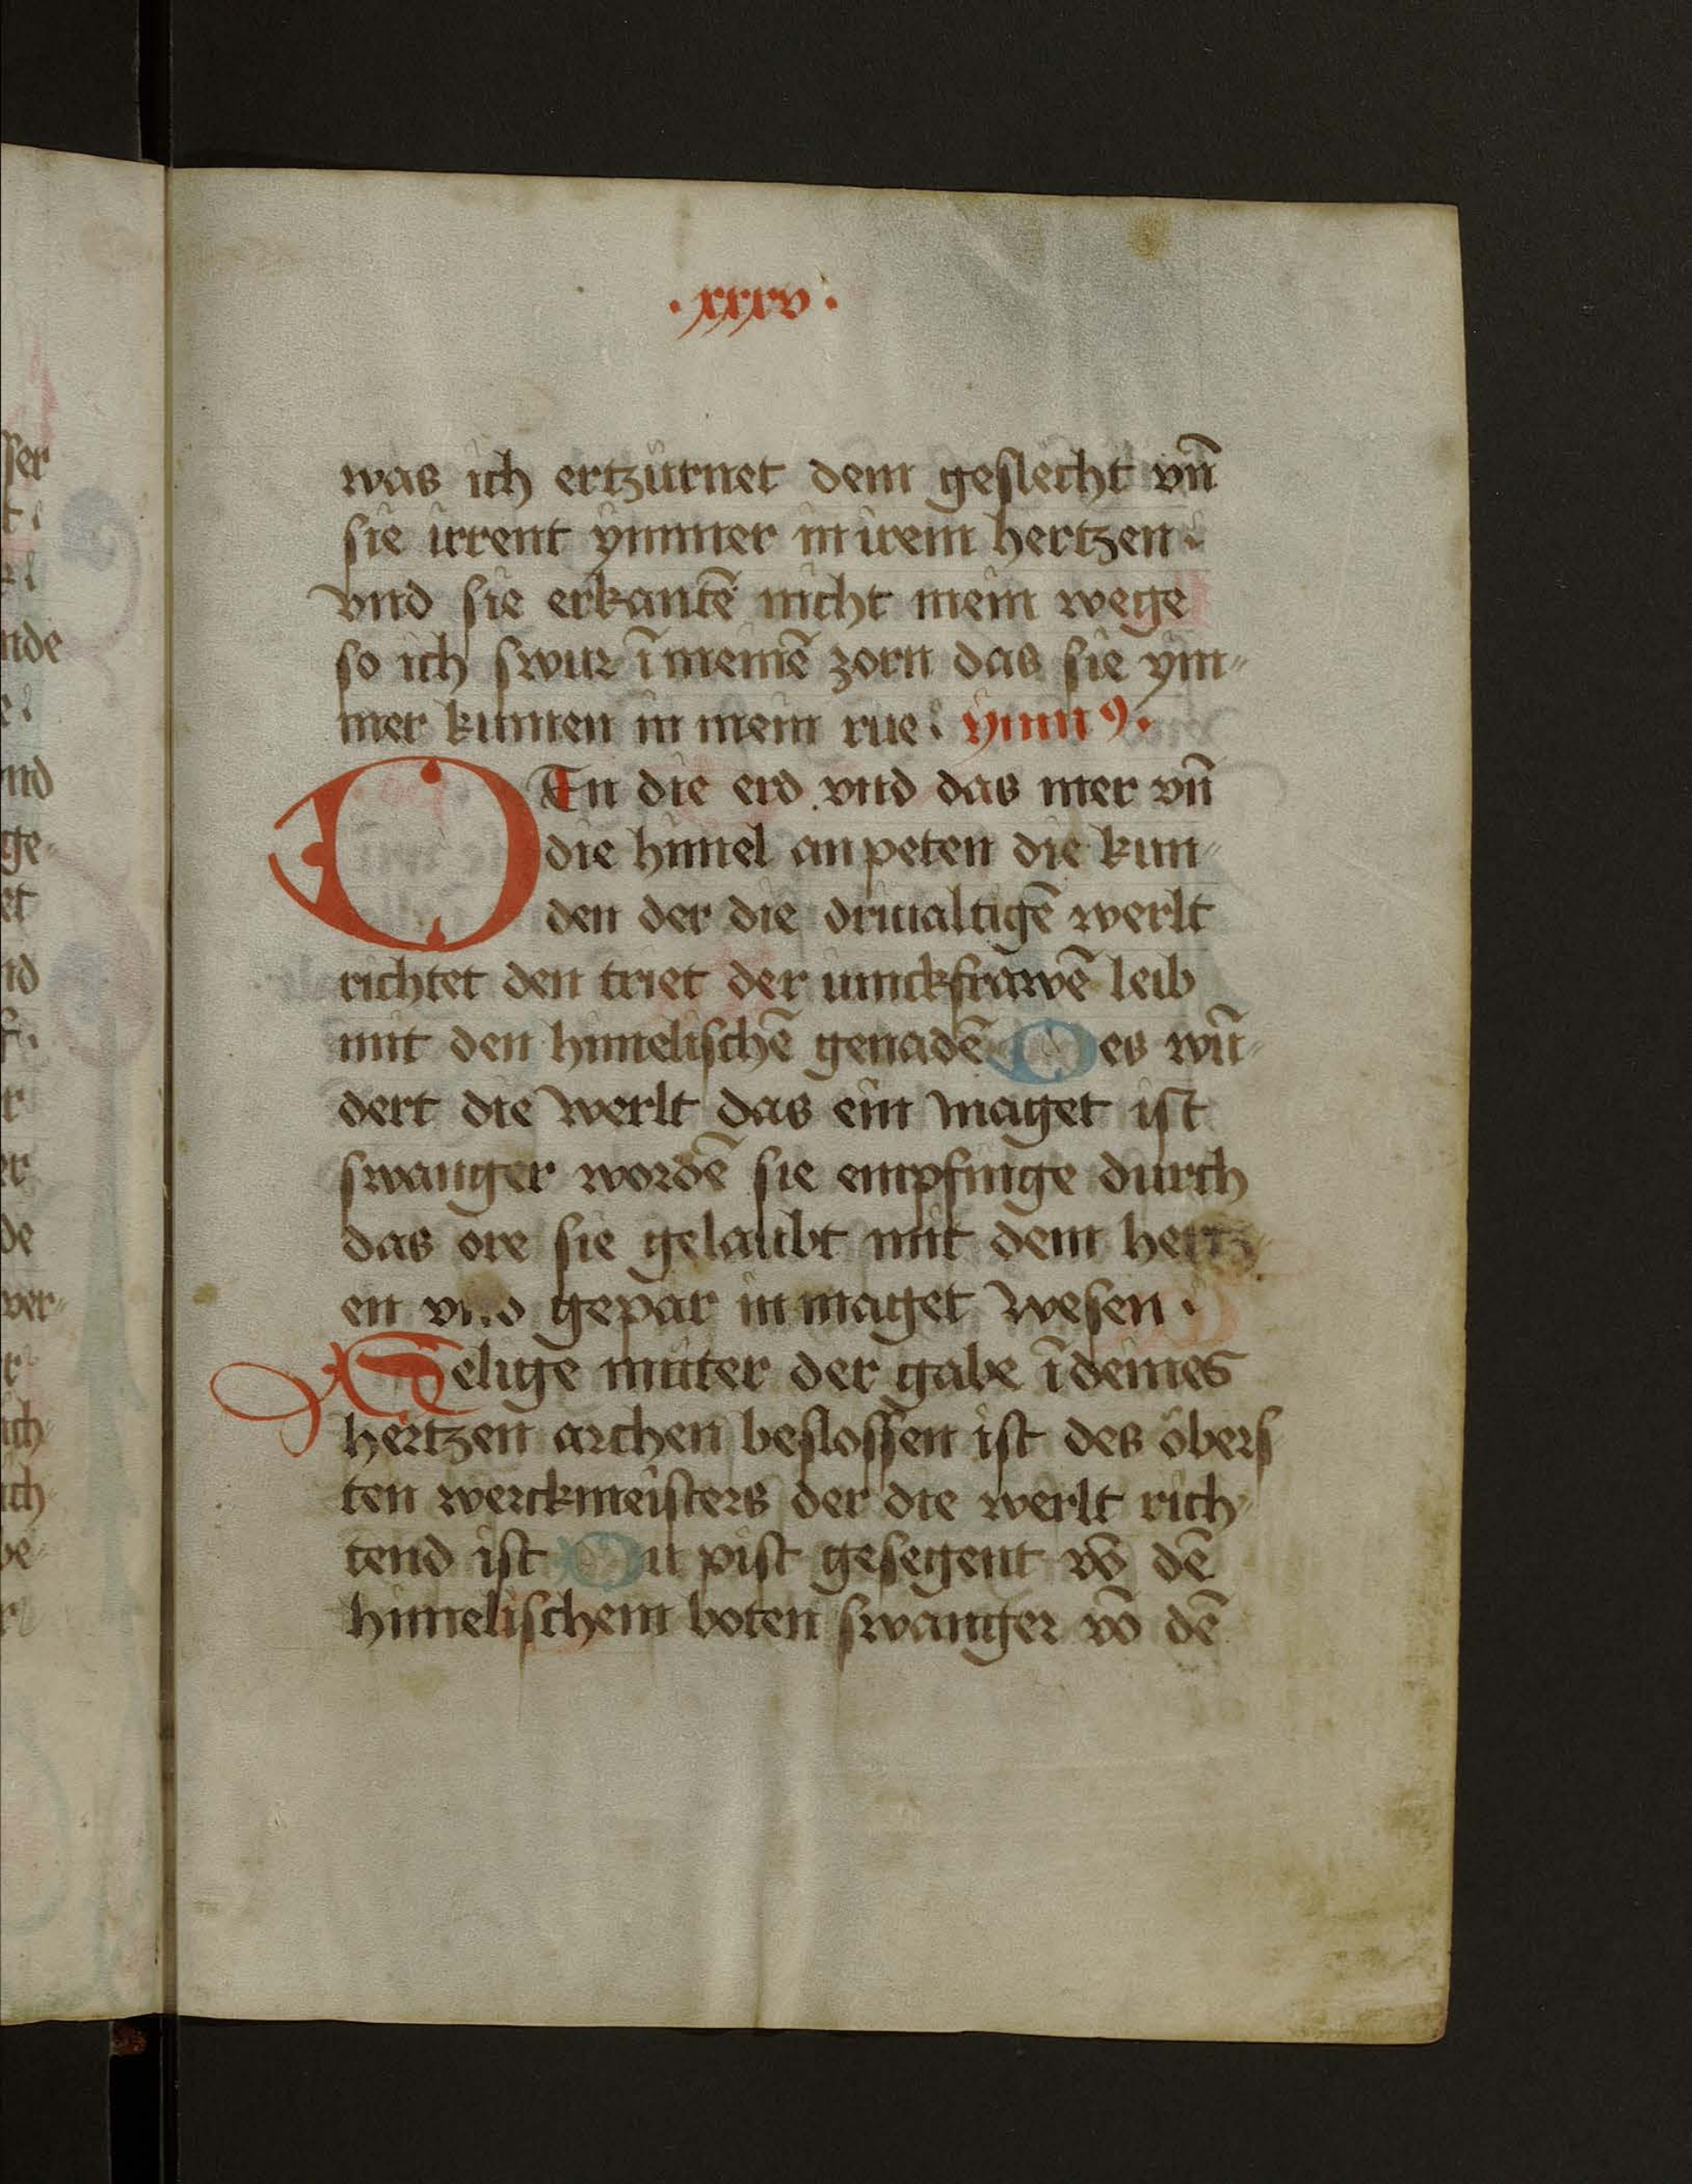 ·xxxv·
was ich ertzürnet dem geslecht vn̄
sie irrent ymmer in irem hertzen·
vnd sie erkantē nicht mein wege
so ich swur ī meinē zorn das sie ym„
mer kumen in mein rue· ymn9·
DEn die erd vnd das mer vn̄
die himel anpeten die kun„
den der die driualtigē werlt
richtet den triet der iunckfrawē leib
mit den himelischē genadē Des wū„
dert die werlt das ein maget ist
swanger wordē sie empfinge durch
das ore sie gelaubt mit dem hertz
en vnd gepar in maget wesen·
Selige muter der gabe ī deines
hertzen archen beslossen ist des obers
ten werckmeisters der die werlt rich„
tend ist Du pist gesegent vō dē
himelischem boten swanger vō dē